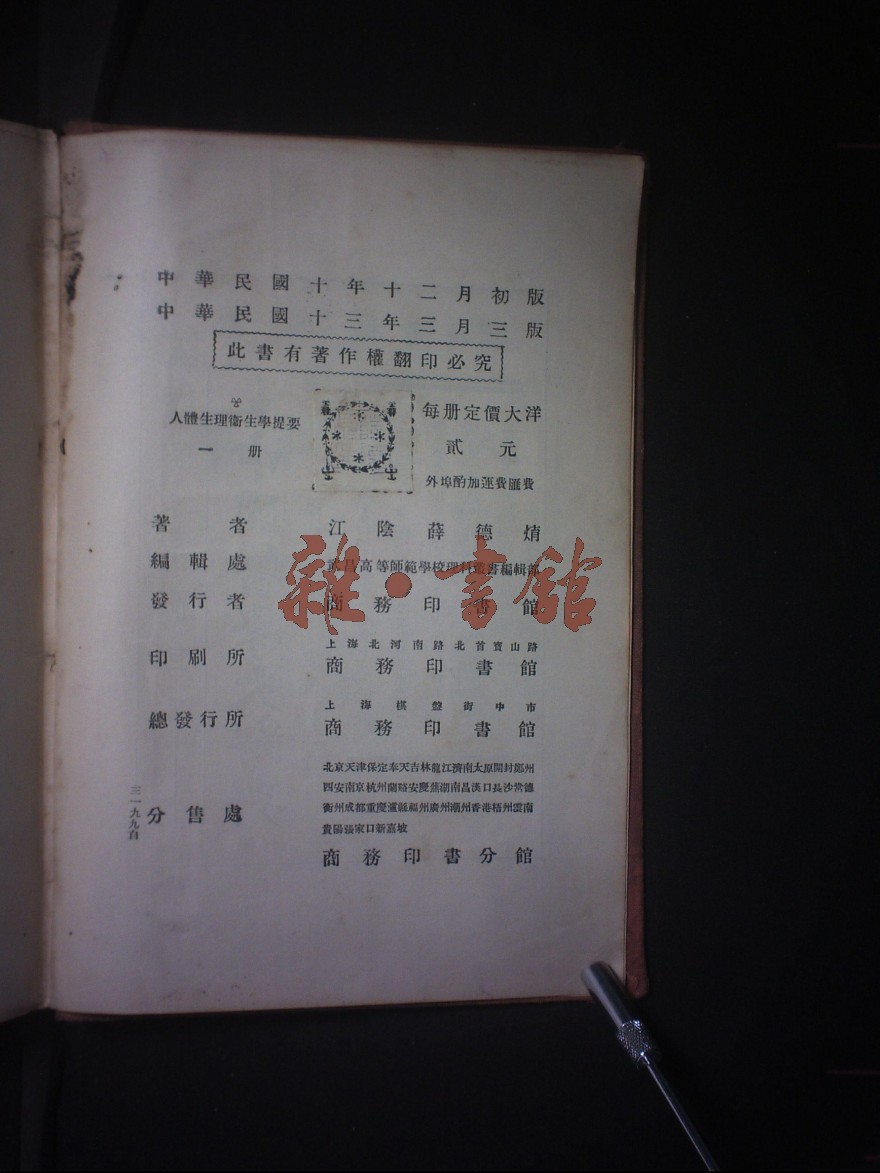 中華民國十年十二月初版
中華民國十三年三月三版
此書有著作權翻印必究
人體生理衞生學提要
一册
每册定價大洋
貳元
外埠酌加運費匯費
著者 江陰薛德焴
編輯處 武昌高等師範學校理科叢書編輯部
發行者 商務印書館
上海北河南路北首寶山路
印刷所 商務印書館
上海棋盤街中市
總發行所 商務印書館
北京天津保定奉天吉林龍江濟南太原開封鄭州
西安南京杭州蘭谿安慶蕪湖南昌漢口長沙常德
衡州成都重慶瀘縣福州廣州潮州香港梧州雲南
貴陽張家口新嘉坡
分售處 商務印書分館
三一九九自
雜·書館